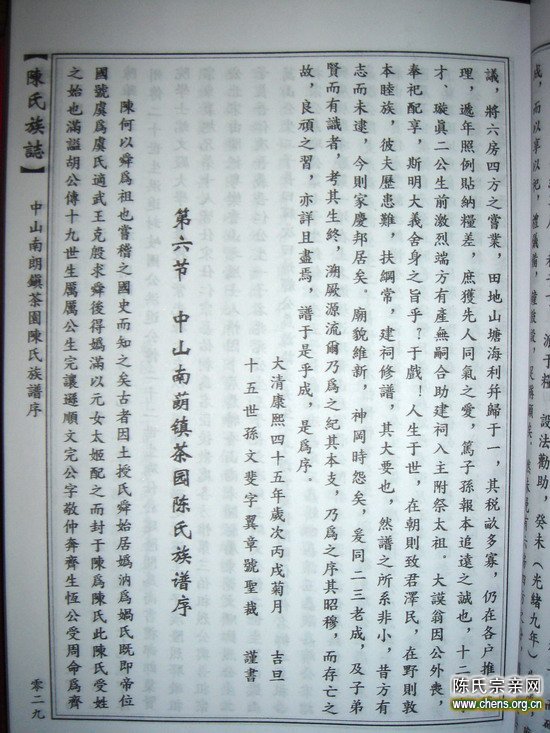 議，將六房四方之嘗業，田地山塘海利幷歸于一，其税畝多寡，仍在各户推
理，遞年照例貼納糧差，庶獲先人同氣之愛，篤子孫報本追遠之誠也，十二
才、璇真二公生前激烈端方有産無嗣合助建祠入主附祭太祖。大謨翁因公外喪，
奉祀配享，斯明大義舍身之旨乎？于戲！人生于世，在朝則致君澤民，在野則敦
本睦族，彼夫歷患難，扶綱常，建祠修譜，其大要也，然譜之所系非小，昔方有
志而未逮，今則家慶邦居矣。廟貌維新，神岡時怨矣，爰同二三老成，及子弟
賢而有識者，考其生終，溯厥源流爾乃爲之紀其本支，乃爲之序其昭穆，而存亡之
故，良頑之習，亦詳且盡焉，譜于是乎成，是爲序。
大清康熙四十五年歲次丙戌菊月 吉旦
十五世孫文斐字翼章號聖裁 謹書
第六节 中山南蓢镇茶园陈氏族谱序
陳何以舜爲祖也嘗稽之國史而知之矣古者因土授氏舜始居嬀汭爲嬀氏既即帝位
國號虞爲虞氏適武王克殷求舜後得嬀滿以元女太姬配之而封于陳爲陳氏此陳氏受姓
之始也滿謚胡公傳十九世生厲厲公生完讓遜順文完公字敬仲奔齊生恆公受周命爲齊
【陳氏族誌】
中山南朗鎮茶園陳氏族譜序
零二九
設法勸助，癸未（光緒九年）
陈氏宗亲网
www.chens.org.cn